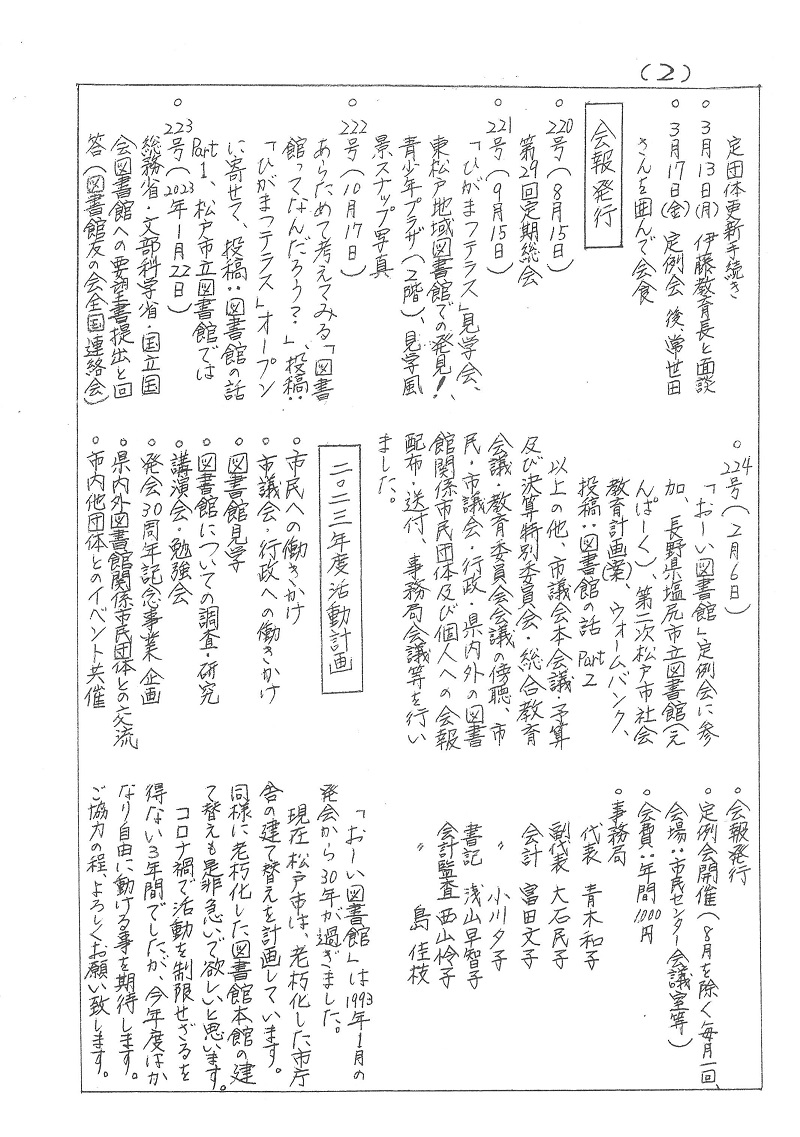 (2)
定団体更新手続き
○3月13日(月) 伊藤教育長と面談
○3月17日(金) 定例会後、常世田
さんを囲んで会食
会報発行
○220号(8月15日)
第29回定期総会
○221号(9月15日)
「ひがまつテラス」見学会、
東松戸地域図書館での発見!、
青少年プラザ(2階)、見学風
景スナップ写真
○222号(10月17日)
あらためて考えてみる「図書
館ってなんだろう?」、投稿:
「ひがまつテラス」オープン
に寄せて、投稿:図書館の話
Part1、松戸市立図書館では
○223号(2023年1月22日)
総務省・文部科学省・国立国
会図書館への要望書提出と回
答(図書館友の会全国連絡会)
○224号(2月6日)
「おーい図書館」定例会に参
加、長野県塩尻市立図書館(え
んぱーく)、第二次松戸市社会
教育計画(案)、ウォームバンク、
投稿:図書館の話 Part2
以上の他、市議会本会議・予算
及び決算特別委員会・総合教育
会議・教育委員会会議の傍聴、市
民・市議会・行政・県内外の図書
館関係市民団体及び個人への会報
配布・送付、事務局会議等を行い
ました。
二〇二三年度活動計画
○市民への働きかけ
○市議会・行政への働きかけ
○図書館見学
○図書館についての調査・研究
○講演会・勉強会
○発会30周年記念事業 企画
○県内外図書館関係市民団体との交流
○市内他団体とのイベント共催
○会報発行
○定例会開催(8月を除く毎月一回、
会場:市民センター会議室等)
○会費:年間1000円
○事務局
代表 青木和子
副代表 大石民子
会計 富田文子
〃 小川夕子
書記 浅山早智子
会計監査 西山怜子
〃 島佳枝
「おーい図書館」は1993年1月の
発会から30年が過ぎました。
現在松戸市は、老朽化した市庁
舎の建て替えを計画しています。
同様に老朽化した図書館本館の建
て替えも是非急いで欲しいと思います。
コロナ禍で活動を制限せざるを
得ない3年間でしたが、今年度はか
なり自由に動ける事を期待します。
ご協力の程、よろしくお願い致します。